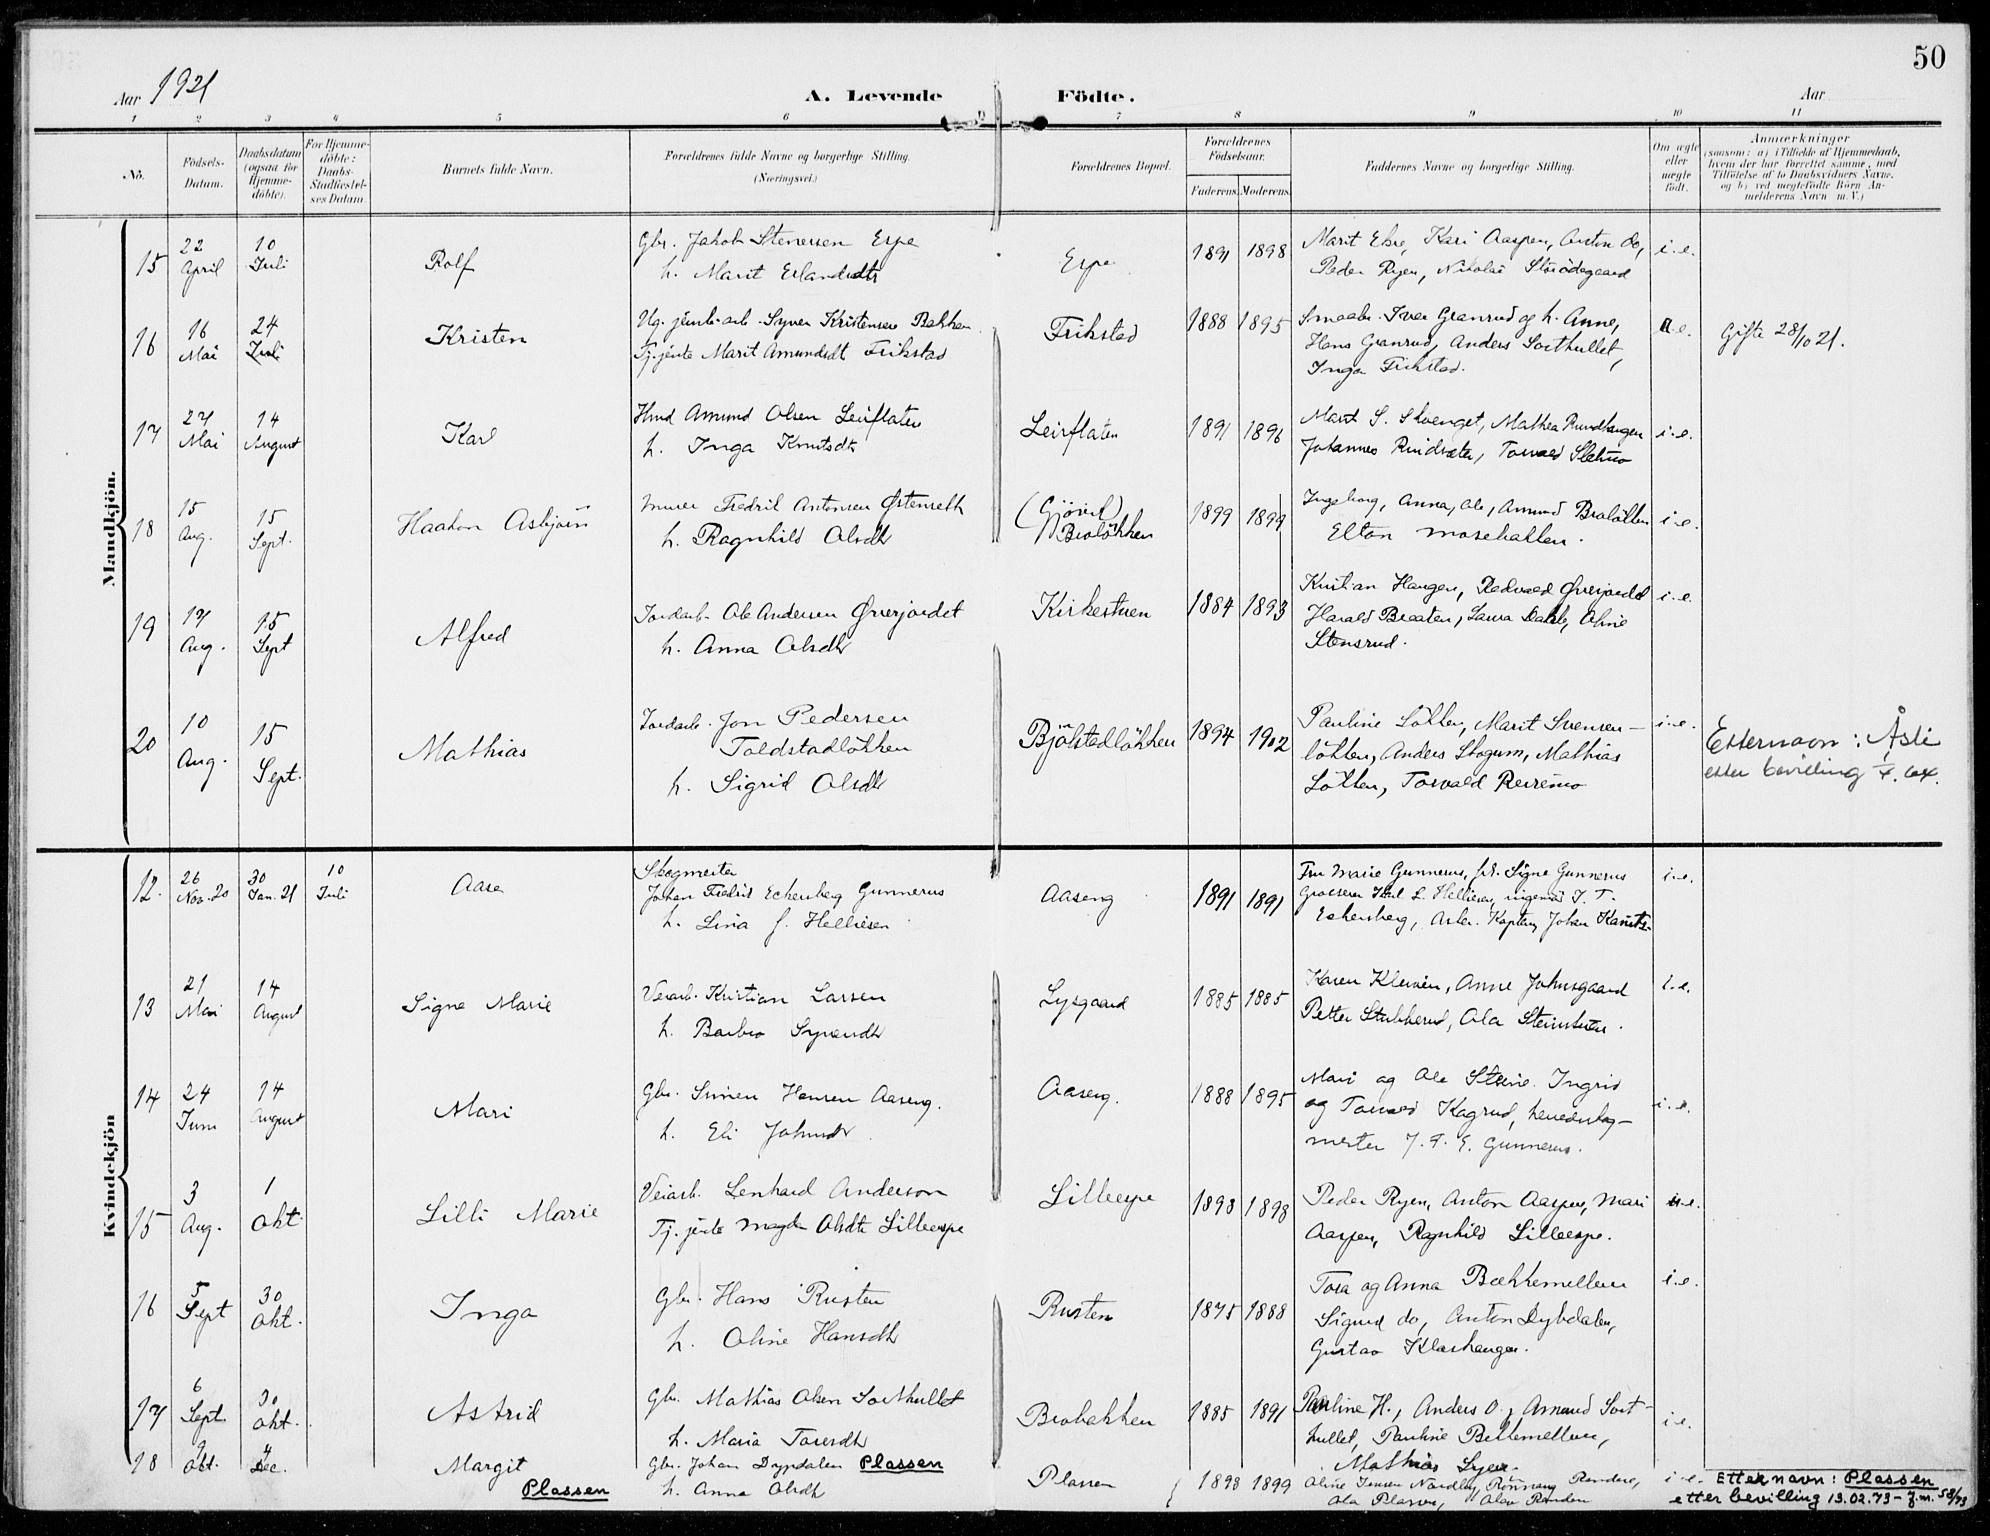 50
Aar 1921
A. Levende Födte.
Aar
1 2 3 4 5 6 7 8 9 10 11
No.
Födsels-Datum.
Daabsdatum (ogsaa for Hjemme-döbte).
For Hjemme-döbte: Daabs-Stadfæstel-ses Datum
Barnets fulde Navn.
Forældrenes fulde Navne og borgerlige Stilling.
(Næringsvei.)
Forældrenes Bopæl.
Forældrenes Födselsaar.
Faderens. Moderens.
Faddernes Navne og borgerlige Stilling.
Om ægte eller uægte födt.
Anmærkninger
(saasom: a) i Tilfælde af Hjemmedaab,
hvem der har forrettet samme, med
Tilföielse af to Daabsvidners Navne.
og b) ved uægtefödte Börn An-
melderens Navn m. V.)
Mandkjön.
15 22 April 10 Juli Rolf
Gbr. Jakob Stenersen Espe
h. Marit Erlandsdtr
Espe 1891 1898
Marit Espe, Kari Aaspen, Anton do,
Peder Ryen, Nikolai
i.e.
16 16 Mai 24 Juli Kristen
Ug. jernb.arb. Syver Kristensen Bakken
Tj.jente Marit Amundsdt Frikstad
Frikstad 1888 1895
Smaabr. Iver Granrud og h. Anne,
Hans Granrud, Anders Sorthullet,
Inga Frikstad.
u.e.
Gifte 28/10 21.
17 27 Mai 14 August Karl
Hmd Amund Olsen Leirflaten
h. Inga Knutsdtr
Leirflaten 1891 1896
Marit S. Mathea
Johannes Torvald
i.e.
18 15 Aug. 15 Sept. Haakon Asbjörn
murer Fredrik Antonsen Østenseth
h. Ragnhild Olsdtr
(Gjövik) Brolökken 1899 1899
Ingeborg, Anna, Ole, Amund Brolökken
Elton Mosebakken.
i.e.
19 17 Aug. 15 Sept Alfred
Jordarb. Ole Andersen Øverjordet
h. Anna Olsdtr
Kirkestuen 1884 1893
Kristian Haugen, Øverjordet
Harald Braaten, Laura Dahle, Oline
Stensrud.
i.e.
20 10 Aug. 15 Sept. Mathias
Jordarb. Jon Pedersen
Toldstadlökken
h. Sigrid Olsdtr
Bjölstadlökken 1894 1902
Pauline Lökken, Marit Svensen-
lökken, Anders Skogum, Mathias
Lökken, Torvald
i.e.
Etternavn: Åsli
etter bevilling
Kvindekjön
12. 26 Nov. 20 30 Jan. 21 10 Juli Aase
Skogmester
Johan Fredrik Eckersberg Gunnerus
h. Lina f. Helliesen
Aaseng 1891 1891
Fru Marie Gunnerus, frk. Signe Gunnerus
L. Helliesen, ingeniör J. T.
Eckersberg, Kaptein Johan
i.e.
13 21 Mai 14 August Signe Marie
Veiarb. Kristian Larsen
h. Barbro Syversdtr
Lysgaard 1885 1885
Karen Kleiven, Anne Johnsgaard
Petter Stubberud, Ola
i.e.
14 24 Juni 14 August Mari
Gbr. Simen Hansen Aaseng.
h. Eli Johnsdtr.
Aaseng. 1888 1895
Mari og Ole Steine. Ingrid
og Torvald Kagrud, herredsskog-
mester J. F. E. Gunnerus.
i.e.
15 3 Aug. 1 Okt. Lilli Marie
Veiarb. Lenhard Anderson
Tj. jente Magda Olsdtr Lilleespe
Lilleespe 1893 1898
Peder Ryen, Anton Aaspen, Mari
Aaspen, Ragnhild Lilleespe.
u.e.
16 5 Sept 30 Okt. Inga
Gbr. Hans Rusten
h. Oline Hansdtr
Rusten 1875 1888
Tora og Anna Bækkemellem
Sigurd do, Anton Dybdalen,
Gustav Klashaugen.
i.e.
17 6 Sept. 30 Okt. Astrid
Gbr. Mathias Olsen Sorthullet
h. Maria
Brobakken 1885 1891
Pauline H., Anders O., Amund Sort-
hullet, Pauline
Mathias
i.e.
18 9 Okt. 4 Dec. Margit
Plassen
Gbr. Johan Dypdalen Plassen
h. Anna Olsdtr
Plassen 1893 1899
Oline Jensen Nordby,
Ola Plassen,
i.e. Etternavn: Plassen
etter bevilling 13.02.73 - J.nr. 58/73